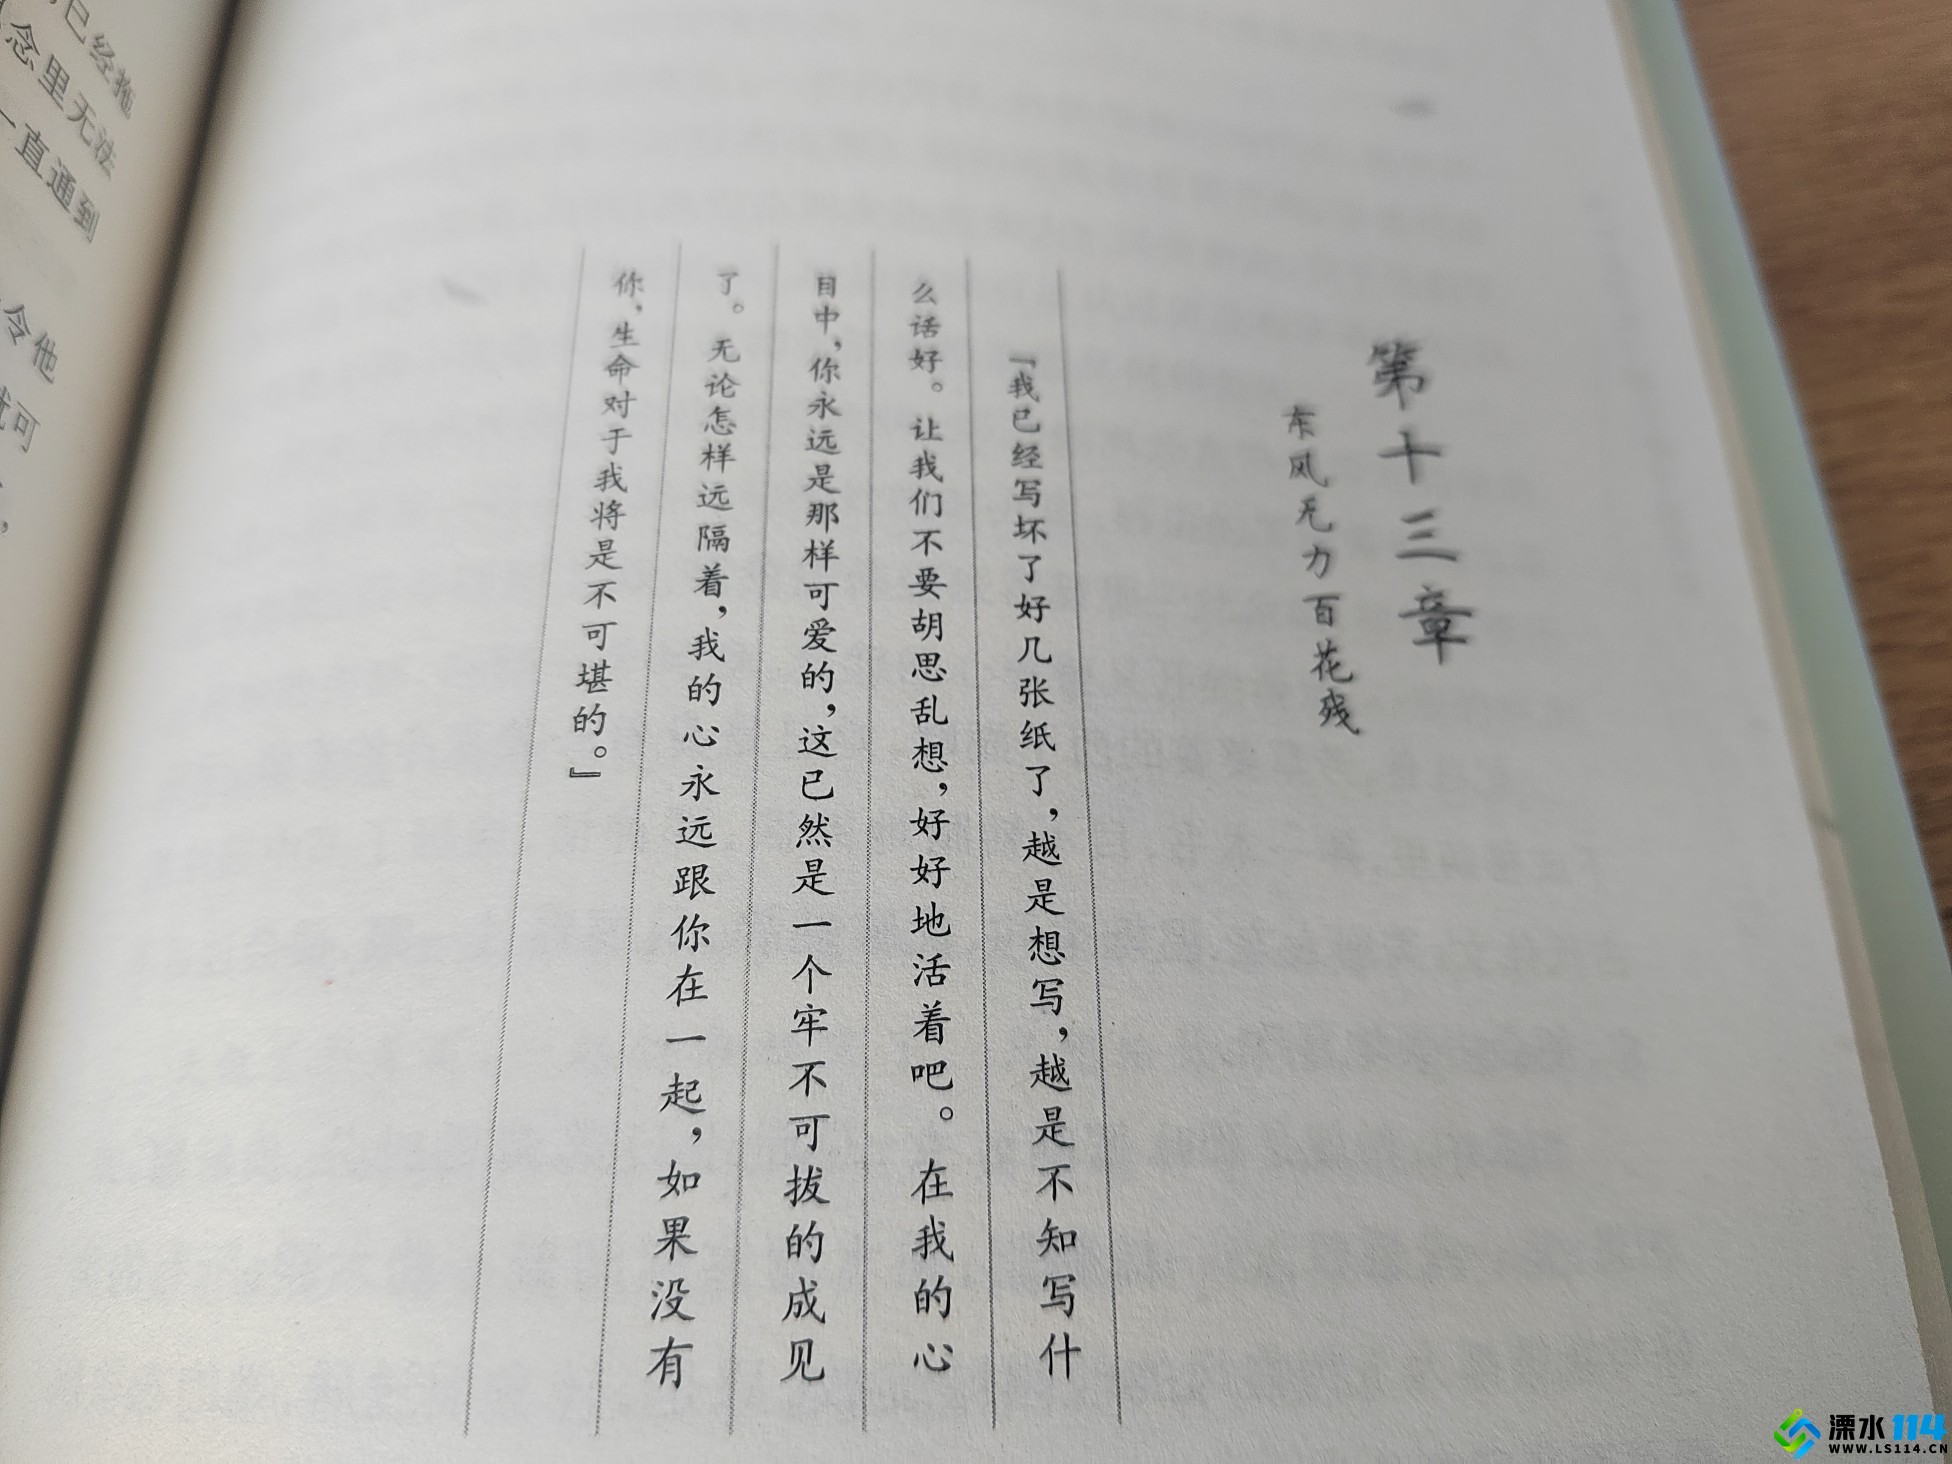 第十三章
东风无力百花残
「我已经写坏了好几张纸了，越是想写，越是不知写什
么话好。让我们不要胡思乱想，好好地活着吧。在我的心
目中，你永远是那样可爱的，这已然是一个牢不可拔的成见
了。无论怎样远隔着，我的心永远跟你在一起，如果没有
你，生命对于我将是不可堪的。』
已经拖
念里无法
一直通到
令他
就可
溧水114
WWW.LS114.CN